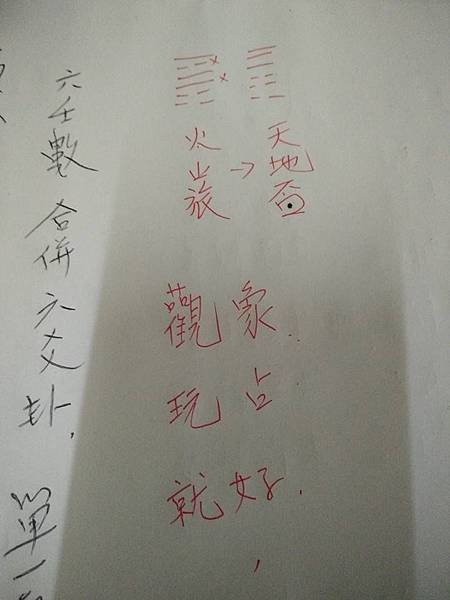 六壬數 合併 六爻卦, 單一
火山旅→天地否
觀象.
玩占
就好.